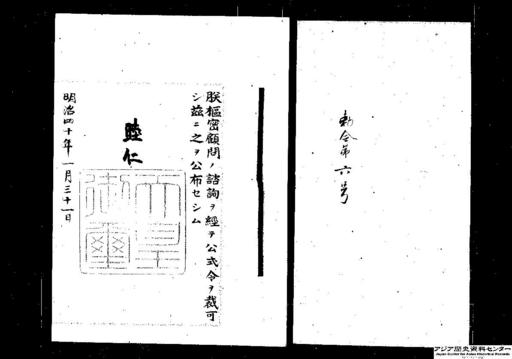 勅令第六号
朕樞密顧問ノ諮詢ヲ經テ公式令ヲ裁可
シ茲ニ之ヲ公布セシム
睦仁
天皇
御璽
明治四十年一月三十一日
アジア歴史資料センター
Japan Center for Asian Historical Records